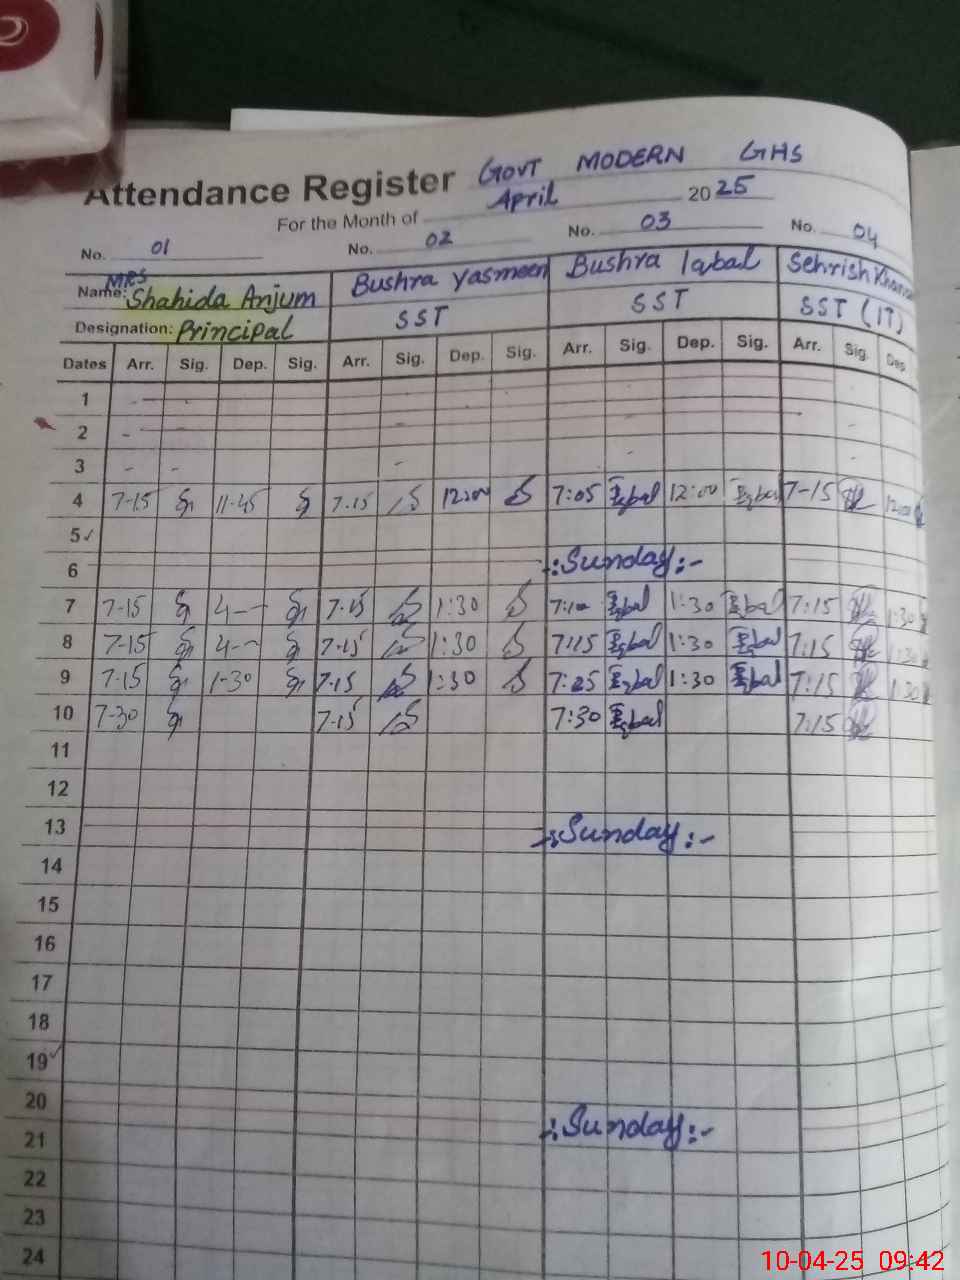 Attendance Register GOVT MODERN GHS
For the Month of April 2025
No. 01 No. 02 No. 03 No. 04
Name: MRS Shahida Anjum Bushra Yasmeen Bushra Iqbal Sehrish
Designation: Principal SST SST SST (IT)
Dates Arr. Sig. Dep. Sig. Arr. Sig. Dep. Sig. Arr. Sig. Dep. Sig. Arr. Sig. Dep.
1
2
3
4 7-15 11-45 7-15 12:00 7:05 Iqbal 12:00 Iqbal 7-15 12:00
5✓
6 -:Sunday:-
7 7-15 4-- 7-15 1:30 7:10 Iqbal 1:30 Iqbal 7:15 1:30
8 7-15 4-- 7-15 1:30 7:15 Iqbal 1:30 Iqbal 7:15 1:30
9 7-15 1-30 7-15 1:30 7:25 Iqbal 1:30 Iqbal 7:15 1:30
10 7-30 7-15 7:30 Iqbal 7:15
11
12
13 -:Sunday:-
14
15
16
17
18
19✓
20 -:Sunday:-
21
22
23
24
10-04-25 09:42